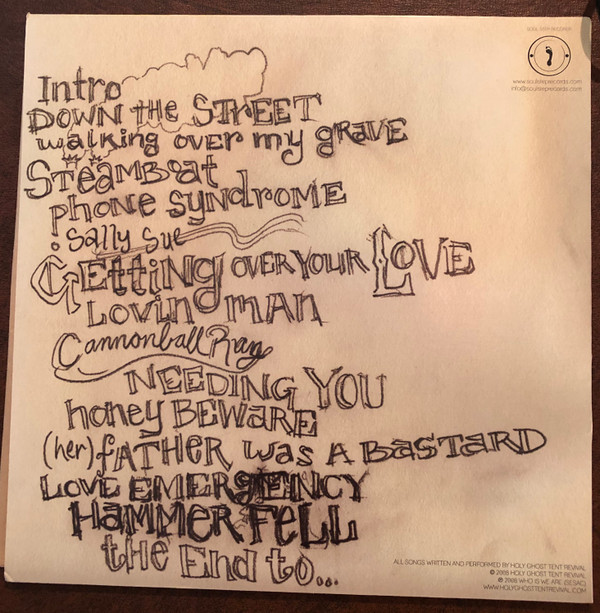 SOUL STEP RECORDS
www.soulsteprecords.com
info@soulsteprecords.com
Intro
DOWN the STREET
walking over my grave
Steamboat
phone syndrome
Sally Sue
Getting over your Love
Lovin man
Cannonball Run
NEEDING YOU
honey BEWARE
(her) fATHER was A BaSTARD
LOVE EMERGENCY
HaMMER FeLL
the End to...
ALL SONGS WRITTEN AND PERFORMED BY HOLY GHOST TENT REVIVAL
© 2008 HOLY GHOST TENT REVIVAL
℗ 2008 WHO IS WE ARE (SESAC)
WWW.HOLYGHOSTTENTREVIVAL.COM